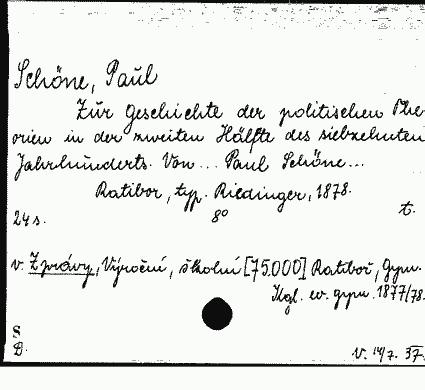 Schöne, Paul
Zur Geschichte der politischen The-
orien in der zweiten Hälfte des siebzehnten
Jahrhunderts. Von ... Paul Schöne ...
Ratibor, typ. Riedinger, 1878.
24 s. 8° t.
v. Zprávy, Výroční, školní [75.000] Ratiboř, Gymn.
Kgl. ev. gymn. 1877/78.
S
D.
V. 14/7. 37.